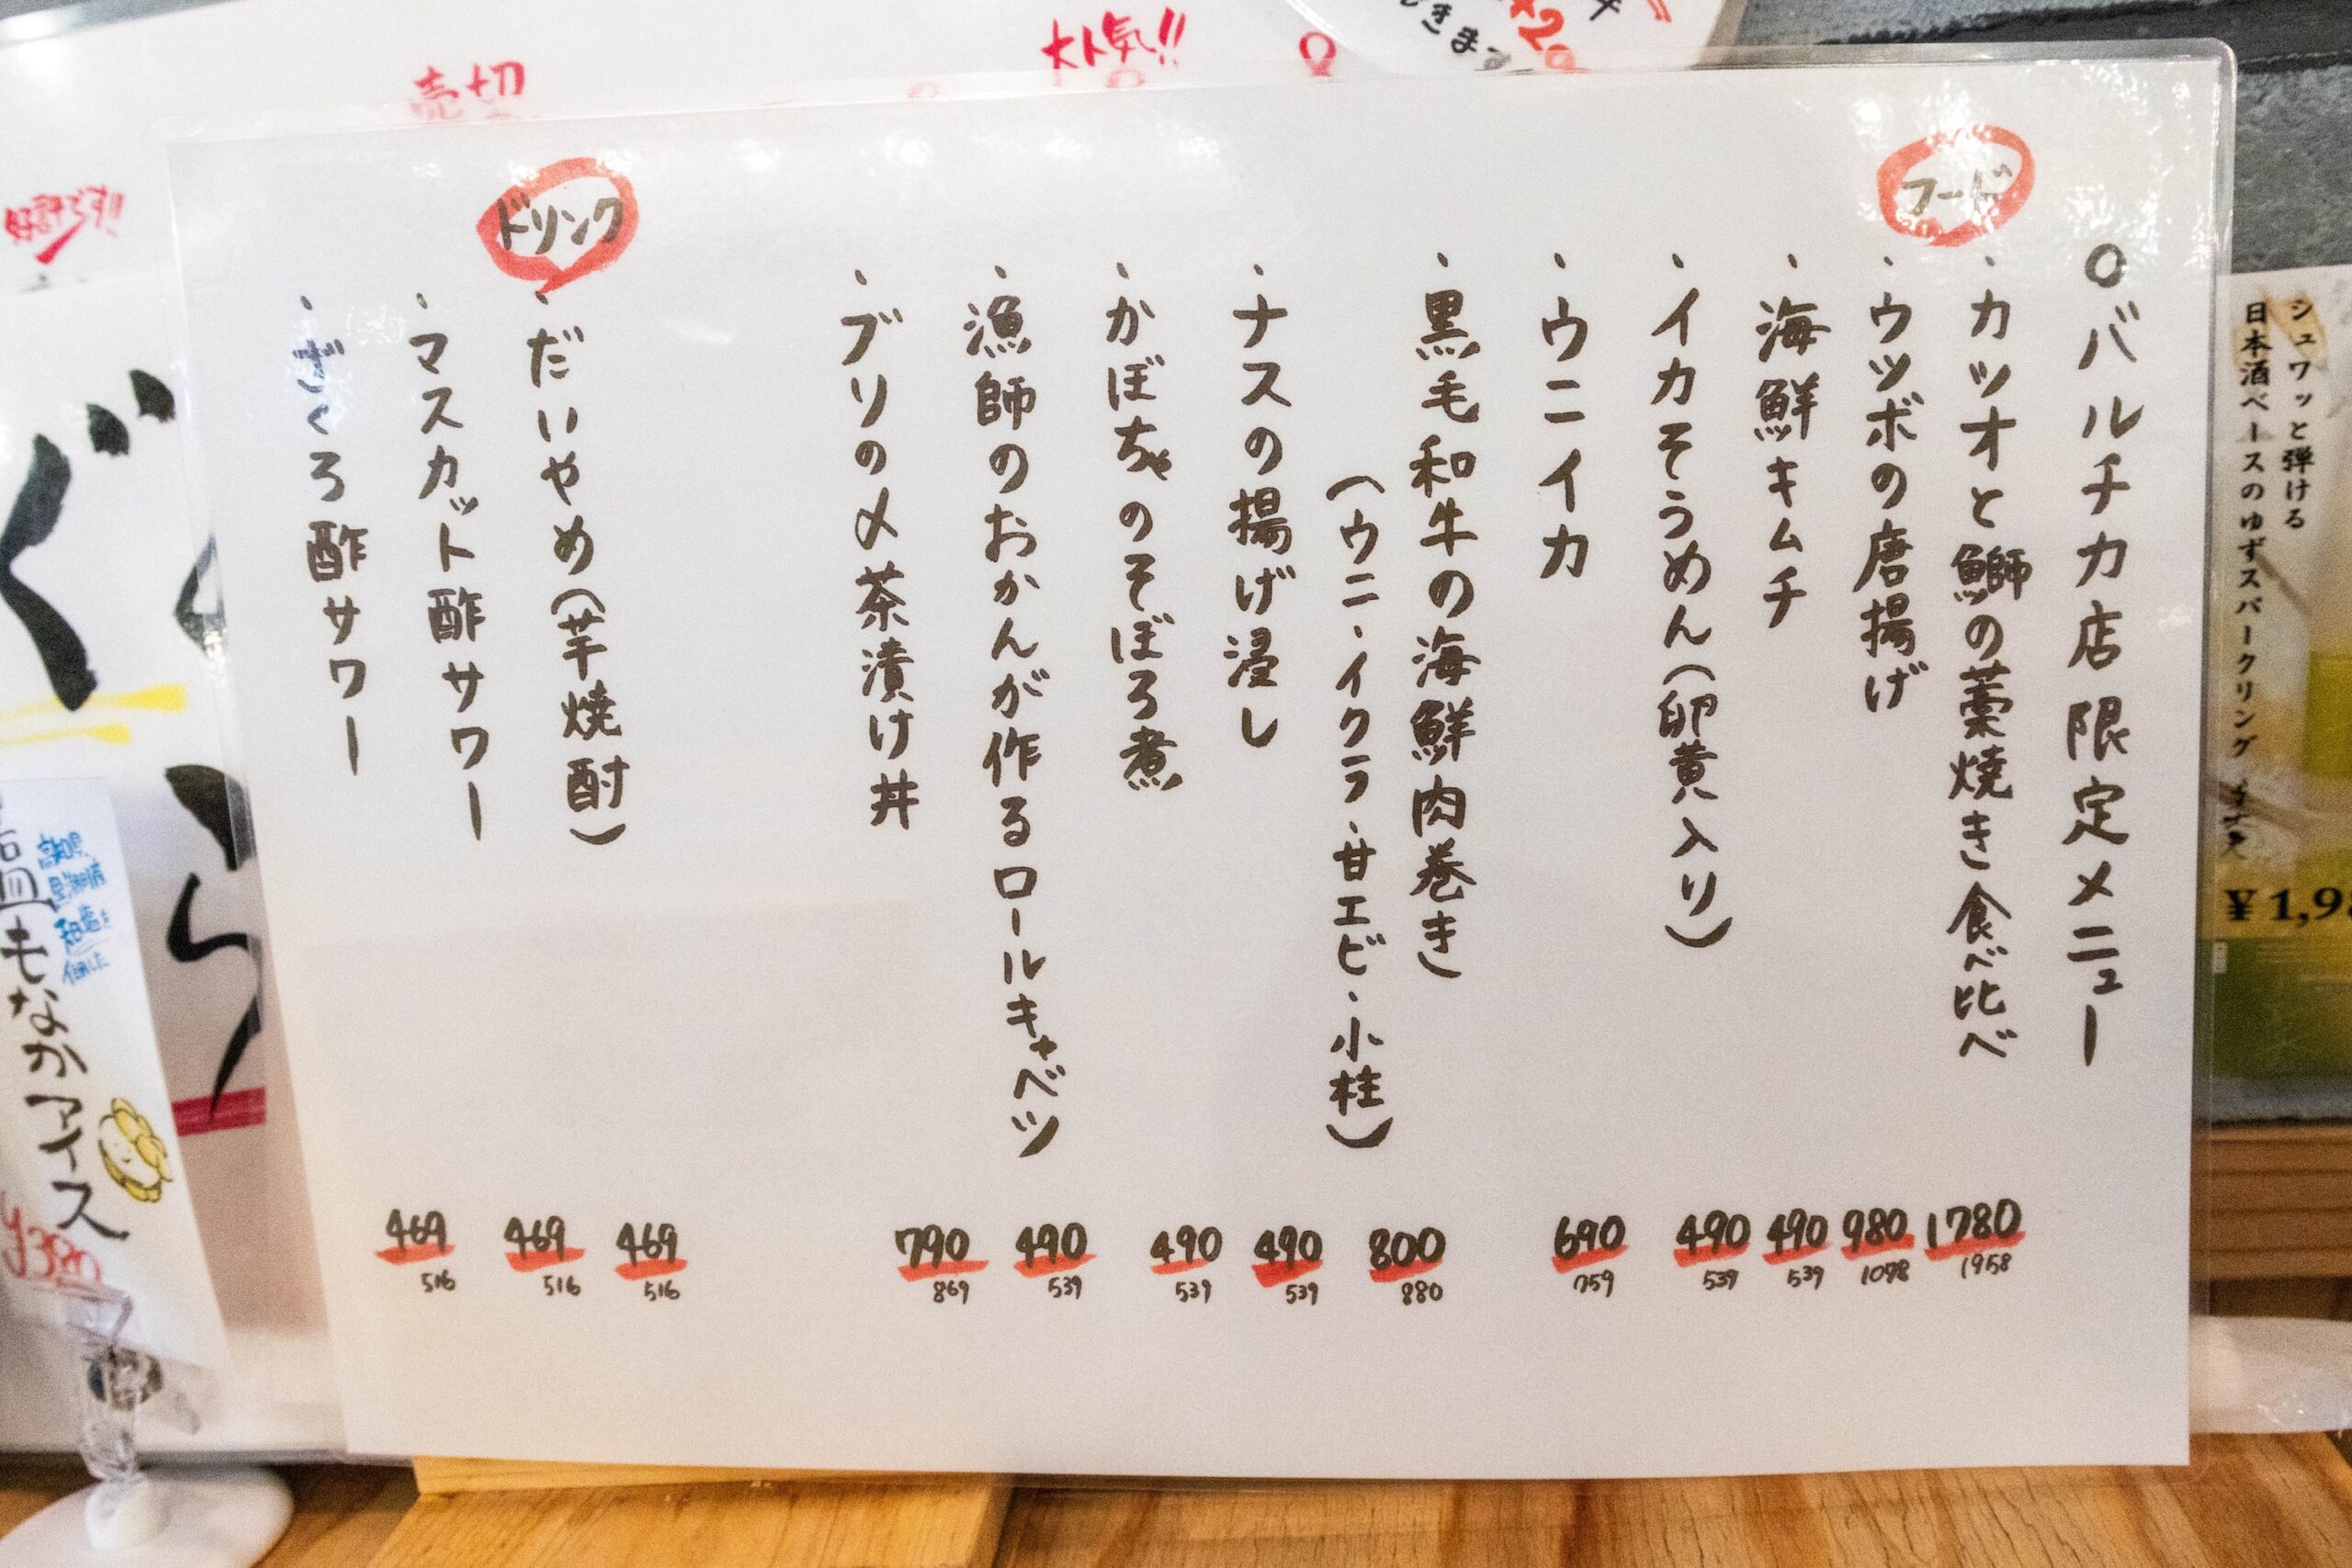 ○バルチカ店限定メニュー
フード
・カツオと鰤の藁焼き食べ比べ 1780 1958
・ウツボの唐揚げ 980 1078
・海鮮キムチ 490 539
・イカそうめん(卵黄入り) 490 539
・ウニイカ 690 759
・黒毛和牛の海鮮肉巻き 800 880
(ウニ・イクラ・甘エビ・小柱)
・ナスの揚げ浸し 490 539
・かぼちゃのそぼろ煮 490 539
・漁師のおかんが作るロールキャベツ 490 539
・ブリの〆茶漬け丼 790 869
ドリンク
・だいやめ(芋焼酎) 469 516
・マスカット酢サワー 469 516
・ざくろ酢サワー 469 516
シュワッと弾ける
日本酒ベースのゆずスパークリング
大人気!!
売切
好評です!!
もなかアイス
¥380